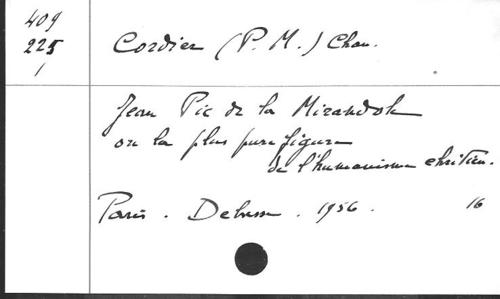 409
225
1
Cordier (P. M.) Chan.
Jean Pic de la Mirandole
ou la plus pure figure
de l'humanisme chrétien.
Paris. Debresse. 1956. 16